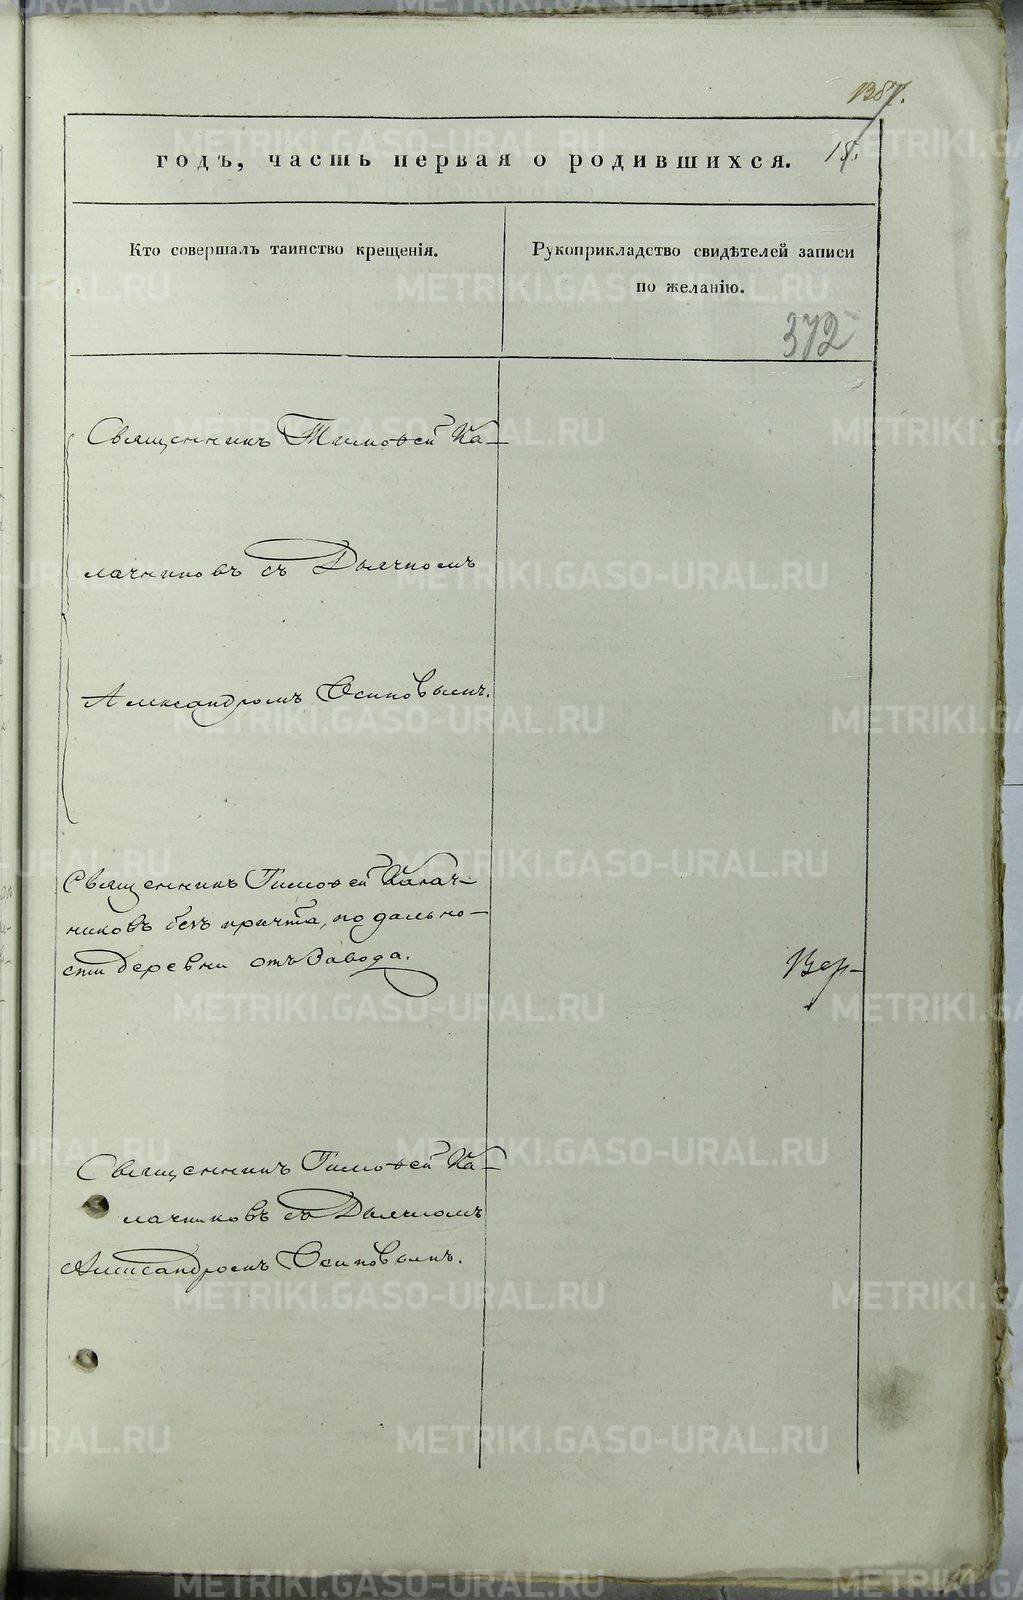 годъ, часть первая о родившихся.
18.
Кто совершалъ таинство крещенія.
Рукоприкладство свидѣтелей записи
по желанію.
372
Священникъ Тимовей Ка-
лачниковъ съ Дьячкомъ
Александромъ Осиповымъ.
Священникъ Тимовей Калач-
никовъ безъ причта, по дально-
сти деревни отъ Завода.
Вер-
Священникъ Тимовей Ка-
лачниковъ съ Дьячкомъ
Александромъ Осиповымъ.
METRIKI.GASO-URAL.RU